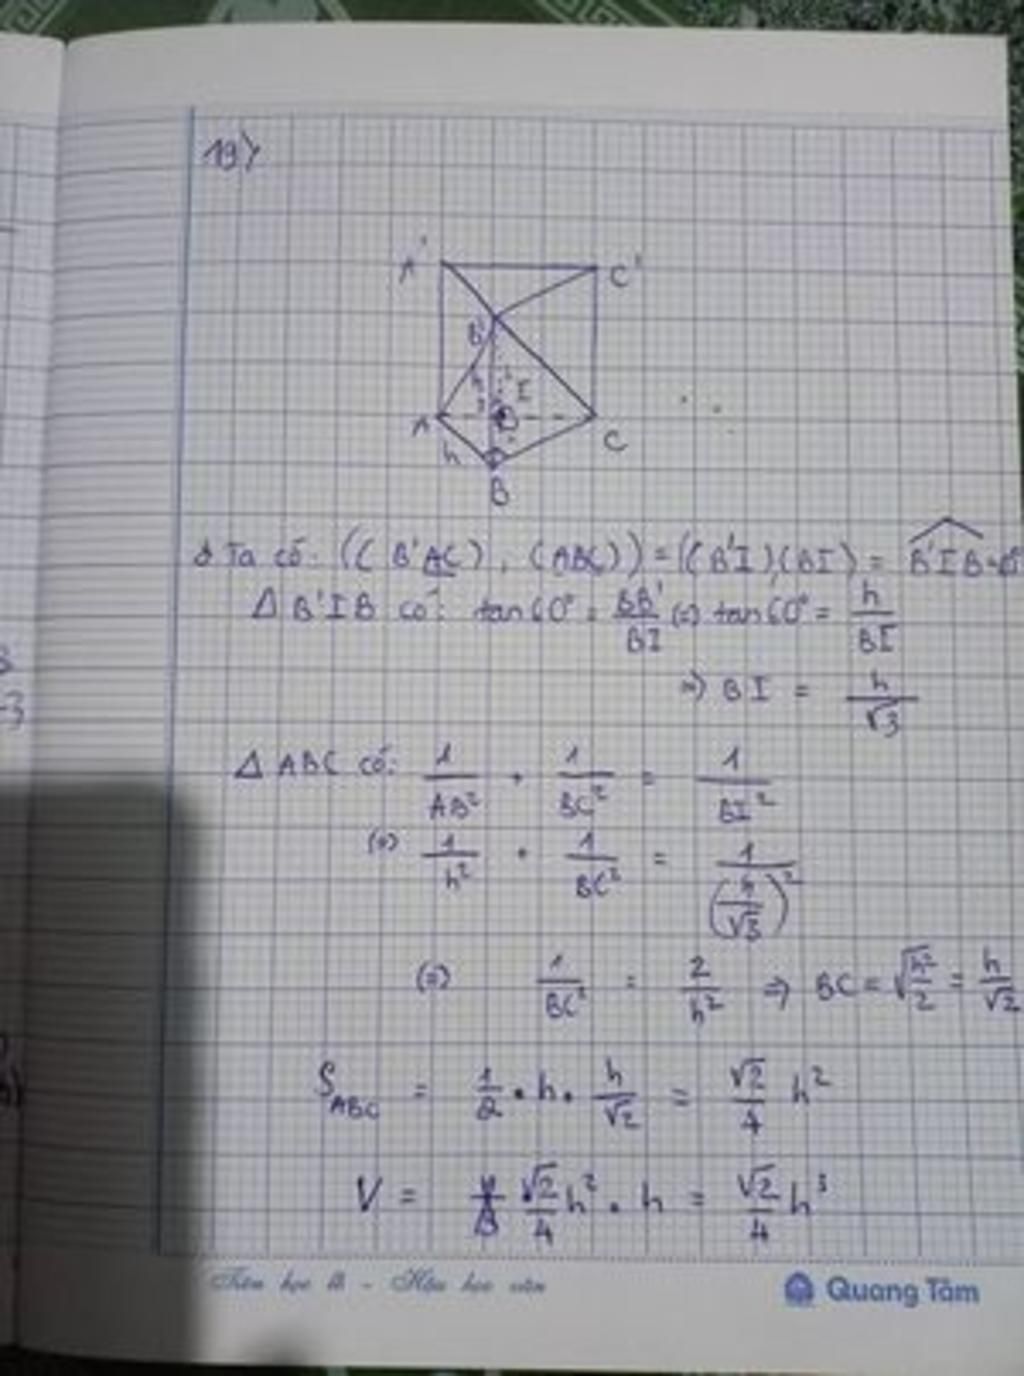 19)
A' C'
B'
h I
A C
h
B
Ta có: ((B'AC), (ABC)) = ((B'I),(BI)) = B'IB = 60°
Δ B'IB có: tan60° = BB'/BI (=) tan60° = h/BI
=) BI = h/√3
Δ ABC có: 1/AB² + 1/BC² = 1/BI²
(=) 1/h² + 1/BC² = 1/(h/√3)²
(=) 1/BC² = 2/h² => BC = √h²/2 = h/√2
S_ABC = 1/2 . h . h/√2 = √2/4 h²
V = √2/4 h² . h = √2/4 h³
Tiên học lễ - Hậu học văn
Quang Tâm